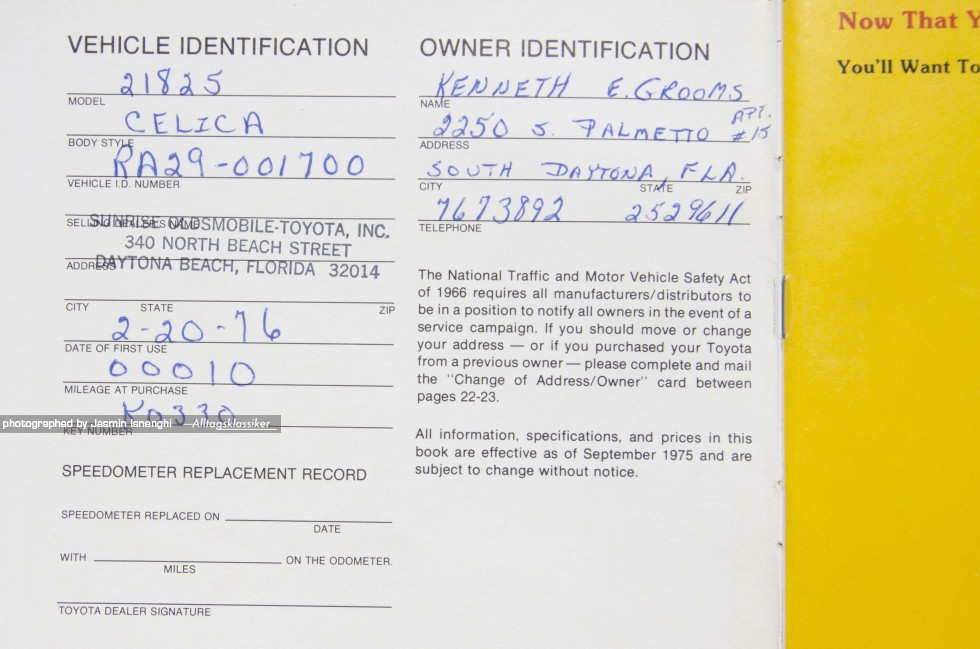 VEHICLE IDENTIFICATION
21825
MODEL
CELICA
BODY STYLE
RA29-001700
VEHICLE I.D. NUMBER
SUNRISE OLDSMOBILE-TOYOTA, INC.
SELLING DEALER'S NAME
340 NORTH BEACH STREET
DAYTONA BEACH, FLORIDA 32014
ADDRESS
CITY STATE ZIP
2-20-76
DATE OF FIRST USE
00010
MILEAGE AT PURCHASE
K0330
KEY NUMBER
photographed by Jasmin Isnenghi - Alltagsklassiker
SPEEDOMETER REPLACEMENT RECORD
SPEEDOMETER REPLACED ON
DATE
WITH ON THE ODOMETER.
MILES
TOYOTA DEALER SIGNATURE
OWNER IDENTIFICATION
KENNETH E. GROOMS
NAME
2250 S. PALMETTO APT. #15
ADDRESS
SOUTH DAYTONA, FLA.
CITY STATE ZIP
7673892 2529611
TELEPHONE
The National Traffic and Motor Vehicle Safety Act
of 1966 requires all manufacturers/distributors to
be in a position to notify all owners in the event of a
service campaign. If you should move or change
your address — or if you purchased your Toyota
from a previous owner — please complete and mail
the "Change of Address/Owner" card between
pages 22-23.
All information, specifications, and prices in this
book are effective as of September 1975 and are
subject to change without notice.
Now That Y
You'll Want To